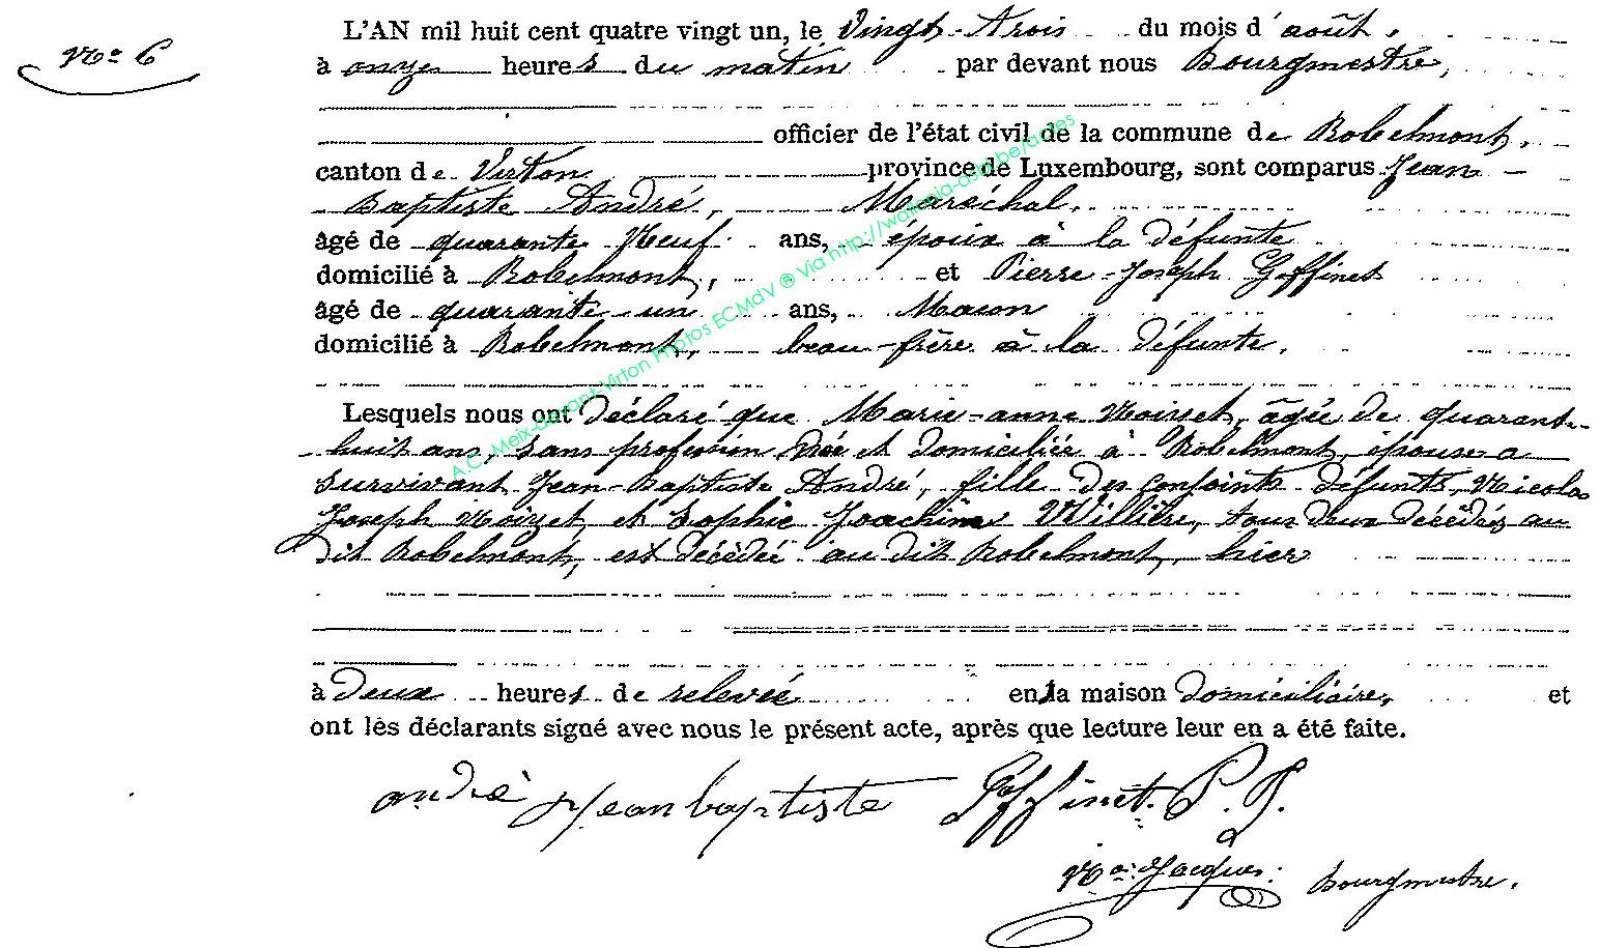 N° 6
L'AN mil huit cent quatre vingt un, le Vingt-trois du mois d'août.
à onze heures du matin par devant nous Bourgmestre,
officier de l'état civil de la commune de Robelmont,
canton de Virton province de Luxembourg, sont comparus Jean
Baptiste André, Maréchal,
âgé de quarante Neuf ans, époux à la défunte
domicilié à Robelmont, et Pierre-Joseph Goffinet
âgé de quarante-un ans, Macon
domicilié à Robelmont, beau-frère à la défunte.
Lesquels nous ont déclaré que Marie-anne Noizet, âgée de quarante-
huit ans, sans profession Née et domiciliée à Robelmont, épouse a
survivant Jean-Baptiste André, fille des conjoints défunts, Nicolas
Joseph Noizet, et Sophie Joachine Willière, tous deux décédés au
dit Robelmont, est décédée au dit Robelmont, hier
à deux heures de relevée en la maison domiciliaire, et
ont lès déclarants signé avec nous le présent acte, après que lecture leur en a été faite.
andré jean baptiste Goffinet. P. J.
Jacques. Bourgmestre.
A.C. Meix-devant-Virton Photos ECMdV ® Via http://wallonia-asbl.be/actes